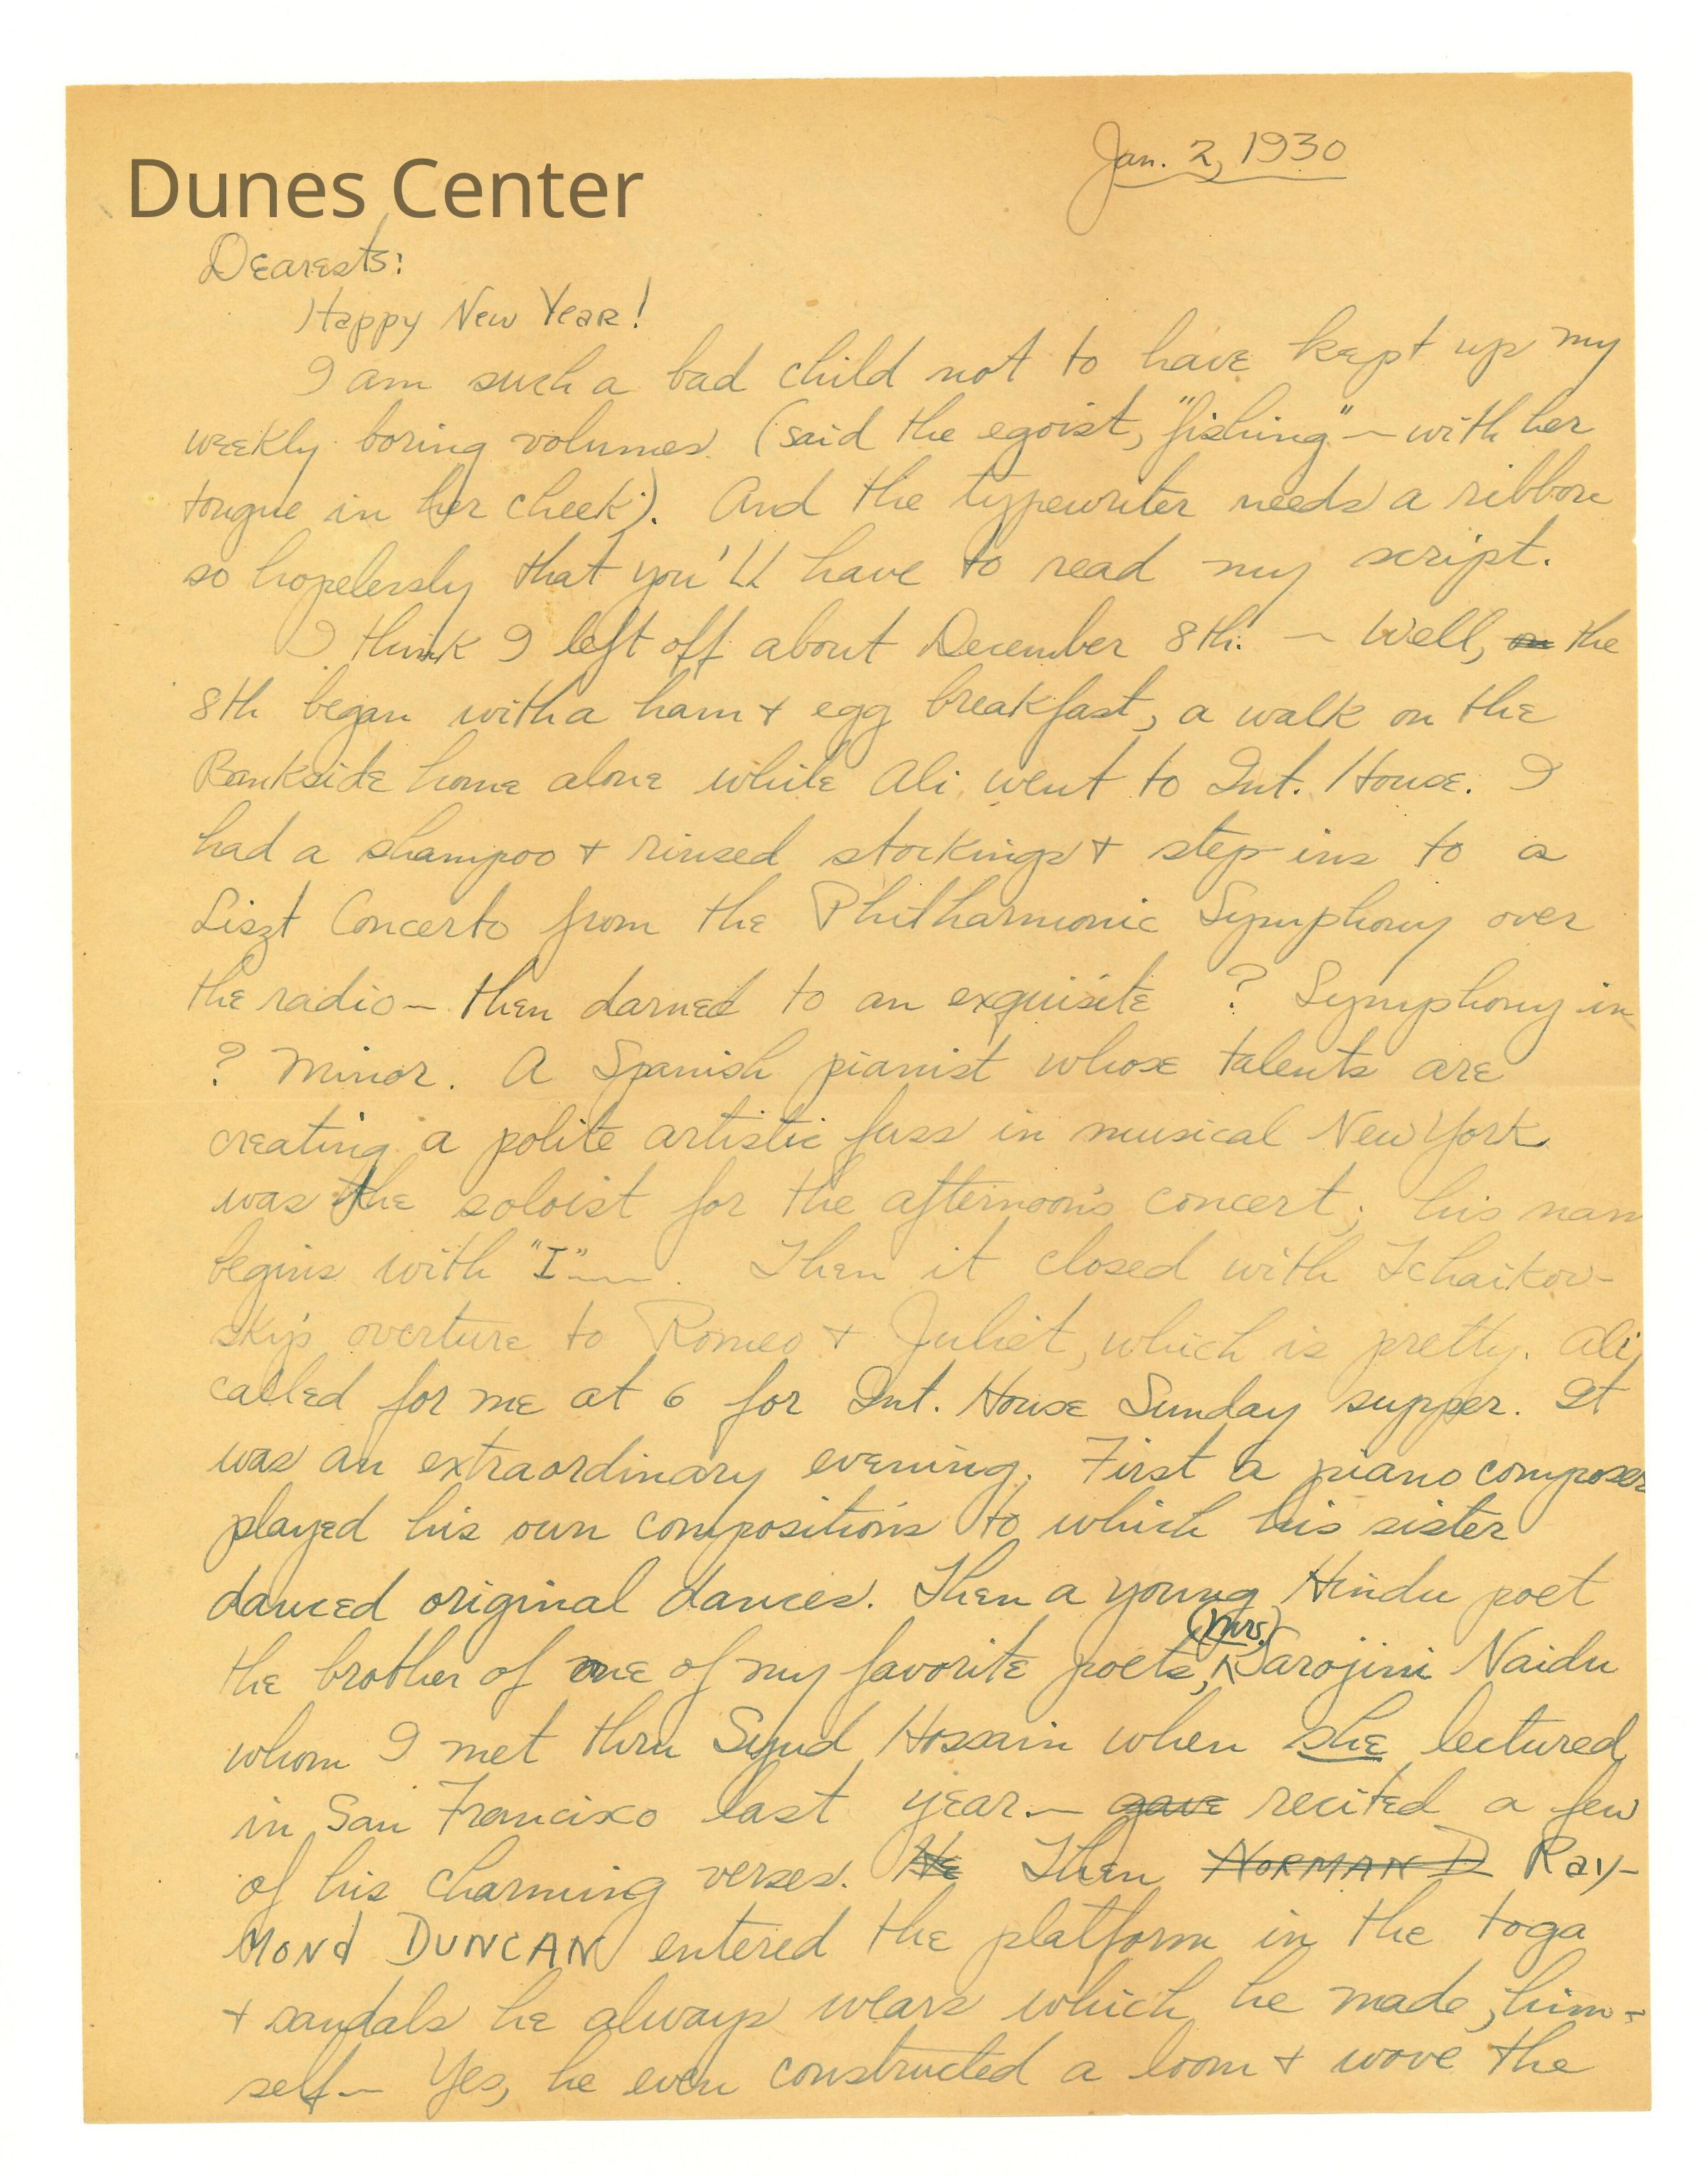 Jan. 2, 1930
Dunes Center
Dearests:
Happy New Year!
I am such a bad child not to have kept up my
weekly boring volumes. (said the egoist, "fishing" — with her
tongue in her cheek). And the typewriter needs a ribbon
so hopelessly that you'll have to read my script.
I think I left off about December 8th. — Well, on the
8th began with a ham & egg breakfast, a walk on the
Bankside home alone while Ali went to Int. House. I
had a shampoo & rinsed stockings & step-ins to a
Liszt Concerto from the Philharmonic Symphony over
the radio — then darned to an exquisite ? Symphony in
? Minor. A Spanish pianist whose talents are
creating a polite artistic fuss in musical New York
was the soloist for the afternoon's concert; his nam
begins with "I" —. Then it closed with Tchaikov-
sky's overture to Romeo & Juliet, which is pretty. Ali
called for me at 6 for Int. House Sunday supper. It
was an extraordinary evening. First a piano composer
played his own compositions to which his sister
danced original dances. Then a young Hindu poet
the brother of one of my favorite poets, (Mrs.) Sarojini Naidu
whom I met thru Syud Hossain when she lectured
in San Francisco last year — gave recited a few
of his charming verses. He Then NORMAN D Ray-
MOND DUNCAN entered the platform in the toga
& sandals he always wears which he made, him-
self — Yes, he even constructed a loom & wove the